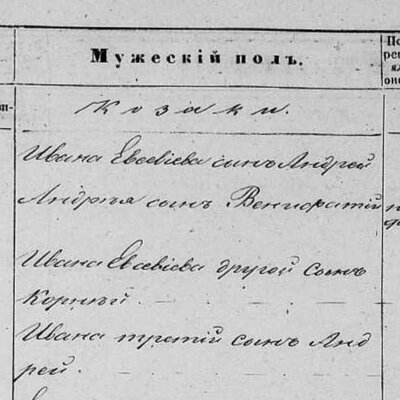 Мужескій полъ.
Козаки.
Ивана Евсевіева сынъ Андрей
Андрѣя сынъ Венифатій
Ивана Евсевіева другой сынъ
Корнѣй
Ивана третій сынъ Анд
рей.